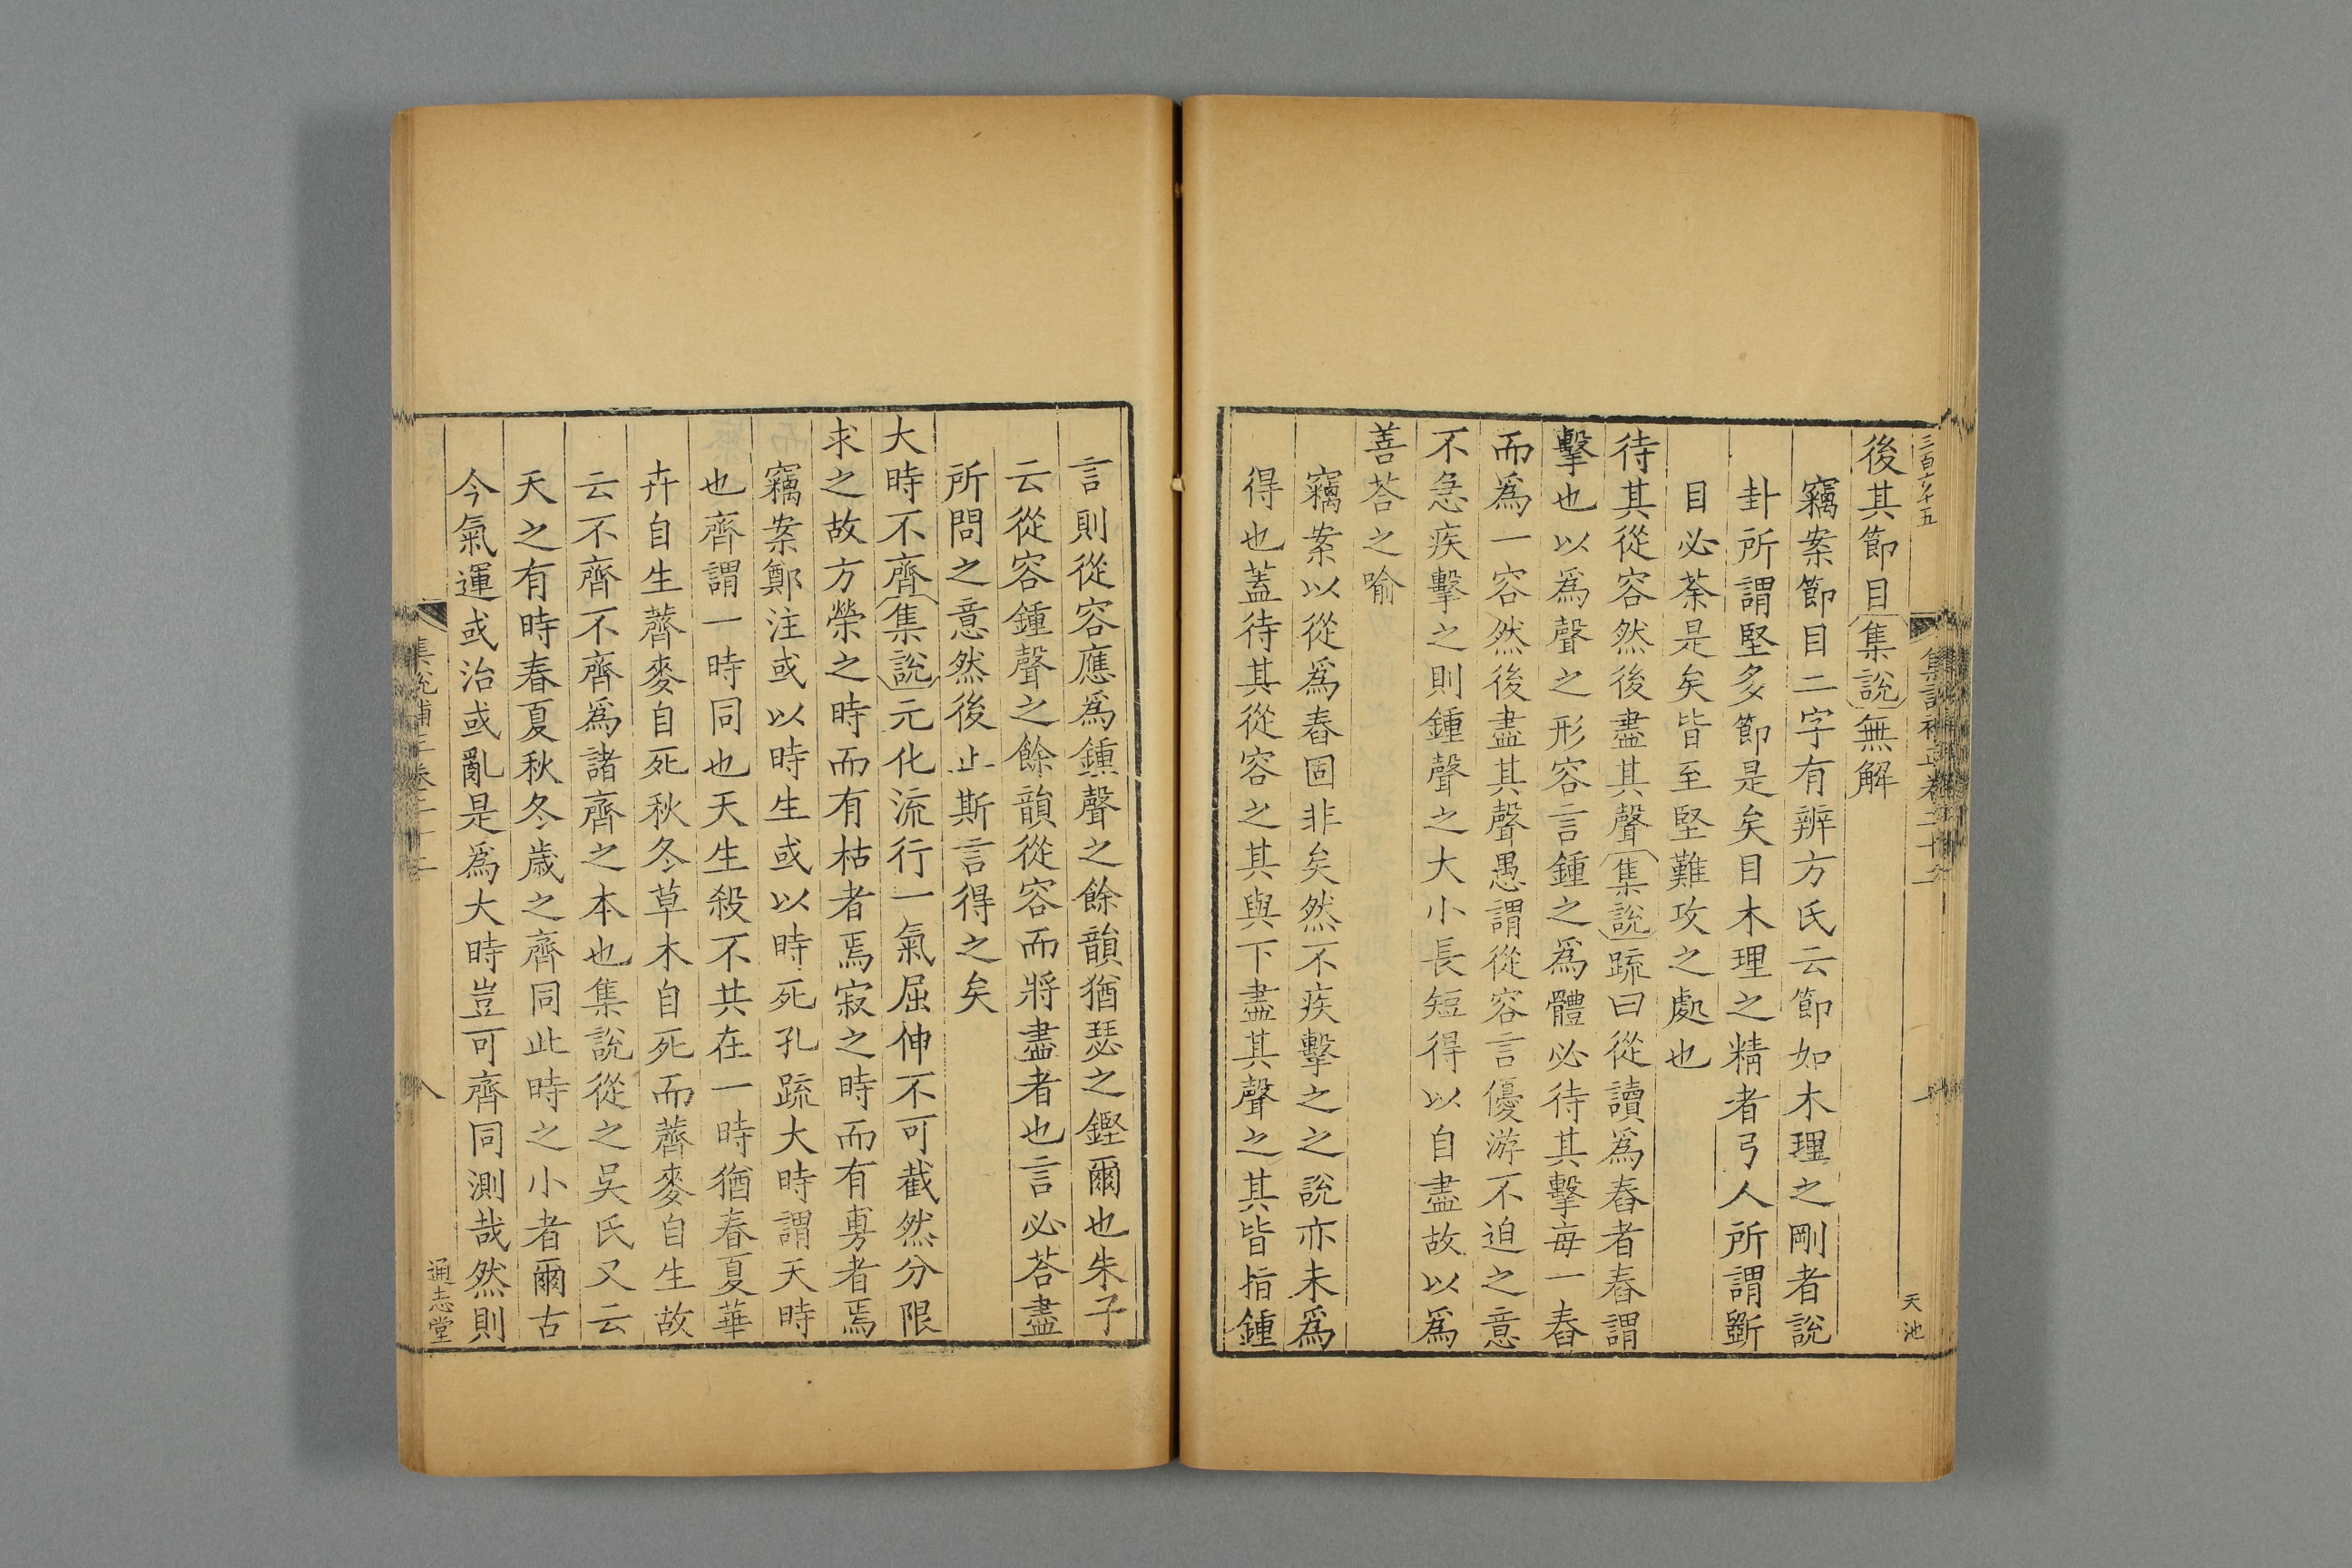 三百六十五
後其節目集說無解
竊案節目二字有辨方氏云節如木理之剛者說
卦所謂堅多節是矣目木理之精者弓人所謂斲
目必荼是矣皆至堅難攻之處也
待其從容然後盡其聲集說疏曰從讀爲舂者舂謂
擊也以爲聲之形容言鍾之爲體必待其擊每一舂
而爲一容然後盡其聲愚謂從容言優游不迫之意
不急疾擊之則鍾聲之大小長短得以自盡故以爲
善荅之喻
竊案以從爲舂固非矣然不疾擊之之說亦未爲
得也蓋待其從容之其與下盡其聲之其皆指鍾
天池
言則從容應爲鍾聲之餘韻猶瑟之鏗爾也朱子
云從容鍾聲之餘韻從容而將盡者也言必荅盡
所問之意然後止斯言得之矣
大時不齊集說元化流行一氣屈伸不可截然分限
求之故方榮之時而有枯者焉寂之時而有旉者焉
竊案鄭注或以時生或以時死孔疏大時謂天時
也齊謂一時同也天生殺不共在一時猶春夏華
卉自生薺麥自死秋冬草木自死而薺麥自生故
云不齊不齊爲諸齊之本也集說從之吳氏又云
天之有時春夏秋冬歲之齊同此時之小者爾古
今氣運或治或亂是爲大時豈可齊同測哉然則
集說補正卷二十
八
通志堂